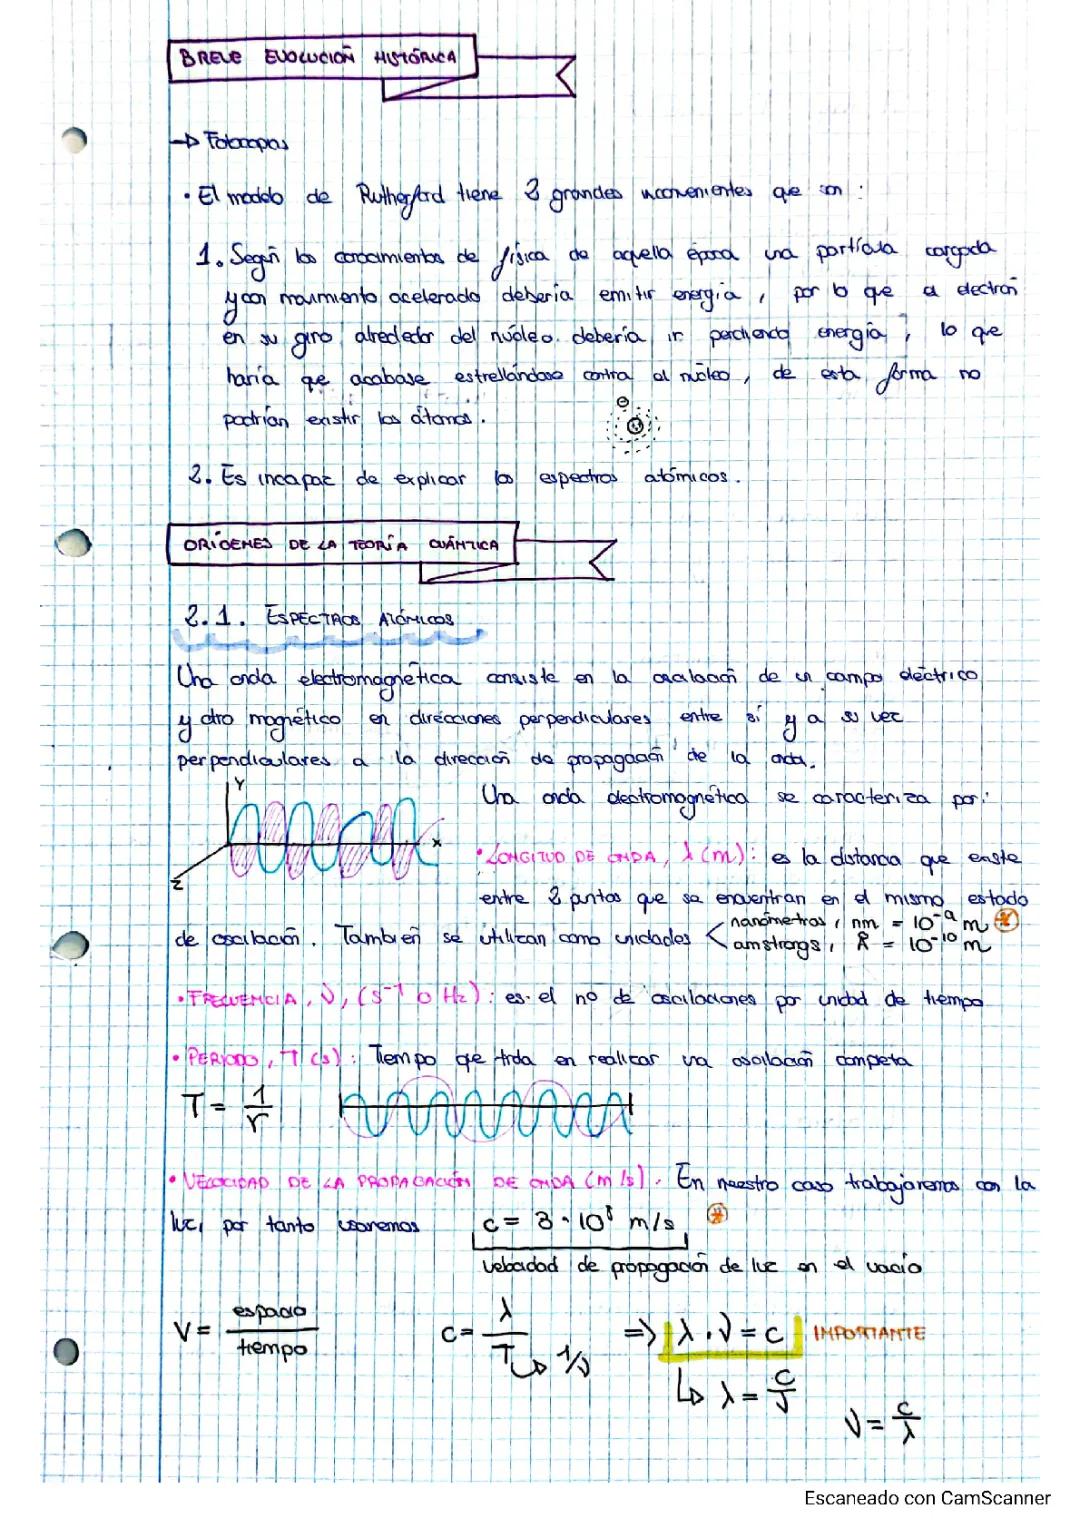 BREVE EVOLUCIÓN HISTÓRICA
→ Fotocopias
• El modelo de Rutherford tiene 2 grandes inconvenientes que son :
1. Según los conocimientos de física de aquella época una partícula cargada
y con movimiento acelerado debería emitir energía, por lo que el electrón
en su giro alrededor del núcleo debería ir perdiendo energía, lo que
haría que acabase estrellándose contra el núcleo, de esta forma no
podrían existir los átomos.
2. Es incapaz de explicar los espectros atómicos.
ORÍGENES DE LA TEORÍA CUÁNTICA
2.1. ESPECTROS ATÓMICOS
Una onda electromagnética consiste en la oscilación de un campo eléctrico
y otro magnético en direcciones perpendiculares entre sí y a su vez
perpendiculares a la dirección de propagación de la onda.
Y
X
Z
Una onda electromagnética se caracteriza por:
• LONGITUD DE ONDA, λ (m): es la distancia que existe
entre 2 puntos que se encuentran en el mismo estado
de oscilación. También se utilizan como unidades < nanómetros, nm = 10⁻⁹ m *
amstrongs, Å = 10⁻¹⁰ m
• FRECUENCIA, ν, (s⁻¹ o Hz): es el nº de oscilaciones por unidad de tiempo
• PERIODO, T (s): Tiempo que tarda en realizar una oscilación completa
T = 1/ν
• VELOCIDAD DE LA PROPAGACIÓN DE ONDA (m/s). En nuestro caso trabajaremos con la
luz, por tanto usaremos c = 3 · 10⁸ m/s *
velocidad de propagación de luz en el vacío
V = espacio/tiempo c = λ/T ↳ 1/ν ⇒ λ · ν = c IMPORTANTE
↳ λ = c/ν
ν = c/λ
Escaneado con CamScanner